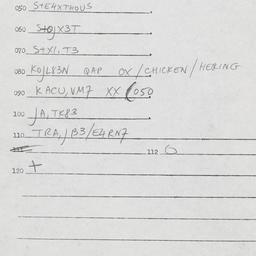 050 S+E4XTHOUS
060 S+OJX3T
070 S+X1,T3
080 KOJL83N QAP OX/CHICKEN/HERING
090 KACU,VM7 XX (050
100 JA,TK83
110 TRA,JB3/E4RN7
111 112 G
120 +